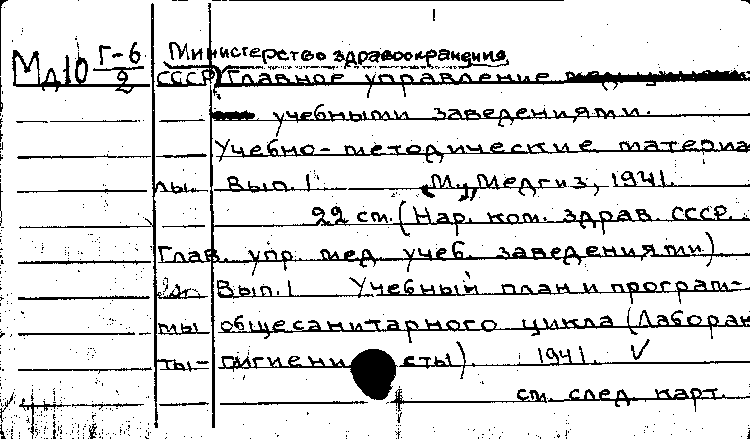 Мд10 Г-6/2 Министерство здравоохранения
СССР Главное управление
учебными заведениями.
Учебно-методические материа
лы. Вып. 1. М., Медгиз, 1941.
22 см. (Нар. ком. здрав. СССР.
Глав. упр. мед. учеб. заведениями)
Вып. 1 Учебный план и програм-
мы общесанитарного цикла (Лаборан
ты-гигиени сты). 1941. ✓
см. след. карт.